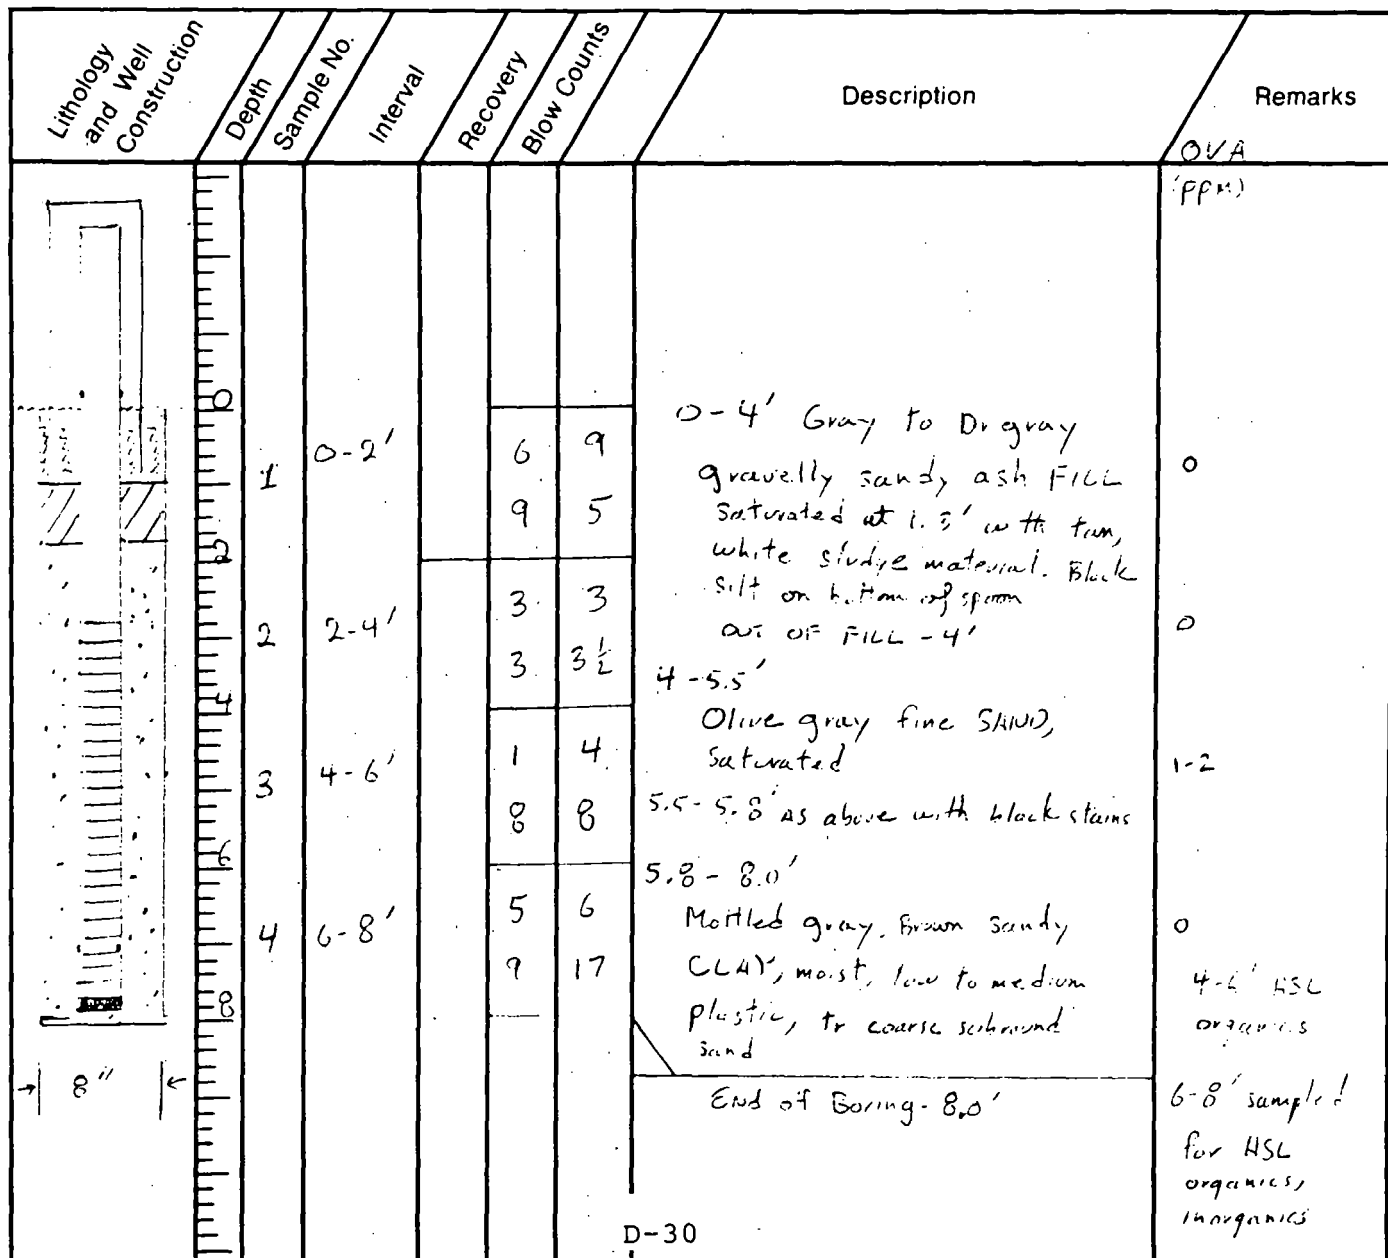 Lithology
and Well
Construction
Depth
Sample No.
Interval
Recovery
Blow Counts
Description
Remarks
OVA
(PPM)
0
1
0-2'
6 9
9 5
0-4' Gray to Dr gray
gravelly sandy ash FILL
saturated at 1.5' with tan,
white sludge material. Black
silt on bottom of spoon
OUT OF FILL - 4'
0
2
2
2-4'
3 3
3 3 1/2
0
4
4-5.5'
Olive gray fine SAND,
saturated
3
4-6'
1 4
8 8
1-2
5.5-5.8' As above with black stains
6
5.8-8.0'
Mottled gray, Brown sandy
CLAY, moist, low to medium
plastic, tr coarse subround
sand
4
6-8'
5 6
9 17
0
4-6' HSL
organics
8
8"
End of Boring - 8.0'
6-8' sampled
for HSL
organics,
inorganics
D-30